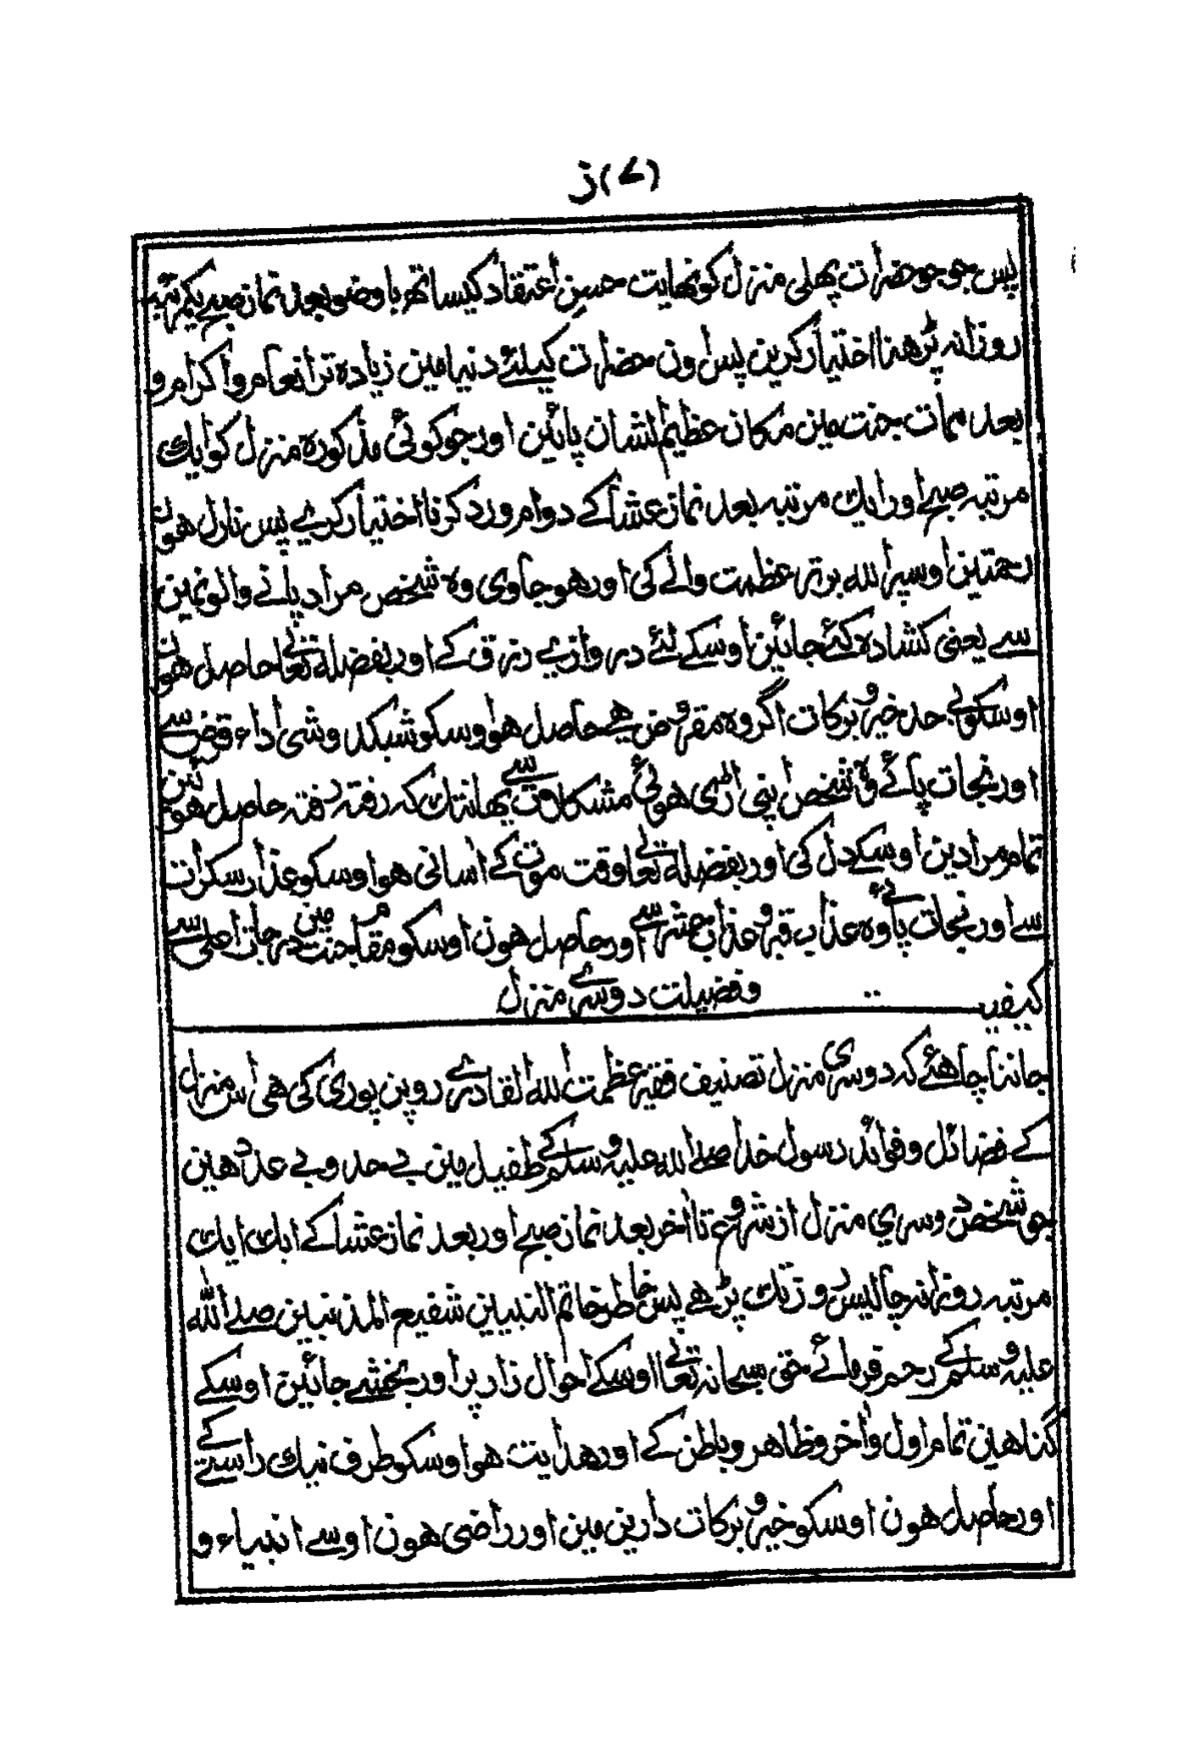 (۷) ز
پس جو جو حضرات پھلی منزل کو نھایت حسن اعتقاد کیساتھ باوضو بعد نماز صبح یکمرتبہ
روزانہ پڑھنا اختیار کرین پس اون حضرات کیلئے دنیا مین زیادہ تر انعام و اکرام و
بعد ممات جنت مین مکان عظیم لشان پائین اور جو کوئی مذکورہ منزل کو ایک
مرتبہ صبح اور ایک مرتبہ بعد نماز عشا کے دوام ورد کرنا اختیار کرے پس نازل ھون
رحمتین اوسپر اللہ برتر عظمت والے کی اور ھو جاوی وہ شخص مراد پانے والونمین
سے یعنی کشادہ کئے جائین اوسکے لئے دروازے رزق کے اور بفضلہ تعالی حاصل ھون
اوسکو بے حد خیر و برکات اگر وہ مقروض ھے حاصل ھو اوسکو شبکدوشی اداء قرض سے
اور نجات پائے وہ شخص اپنی اڑی ھوئی مشکلات سے یھانتک کہ رفتہ رفتہ حاصل ھوئین
تمام مرادین اوسکے دل کی اور بفضلہ تعالی وقت موت کے اسانی ھو اوسکو عذاب سکرات
سے اور نجات پائے وہ عذاب قبر و عذاب حشر سے اور حاصل ھون اوسکو مقام جنت مین درجات اعلی سے
کیفیت .. و فضیلت دوسرے منزل
جاننا چاھئے کہ دوسری منزل تصنیف فقیر عظمت اللہ القادرے روپن پوری کی ھی اس منزل
کے فضائل و فوائد رسول خدا صلے اللہ علیہ و سلم کے طفیل مین بے حد و بے عدد ھین
جو شخص دوسری منزل از شروع تا اخر بعد نماز صبح اور بعد نماز عشا کے ایک ایک
مرتبہ روزانہ چالیس روز تک پڑھے پس خاطر خاتم النبیین شفیع المذنبین صلے اللہ
علیہ و سلم کے رحم فرمائے حق سبحانہ تعالی اوسکے احوال زار پر اور بخشے جائین اوسکے
گناھین تمام اول و اخر و ظاھر و باطن کے اور ھدایت ھو اوسکو طرف نیک راستے کے
اور حاصل ھون اوسکو خیر و برکات دارین مین اور راضی ھون اوسے انبیاء و